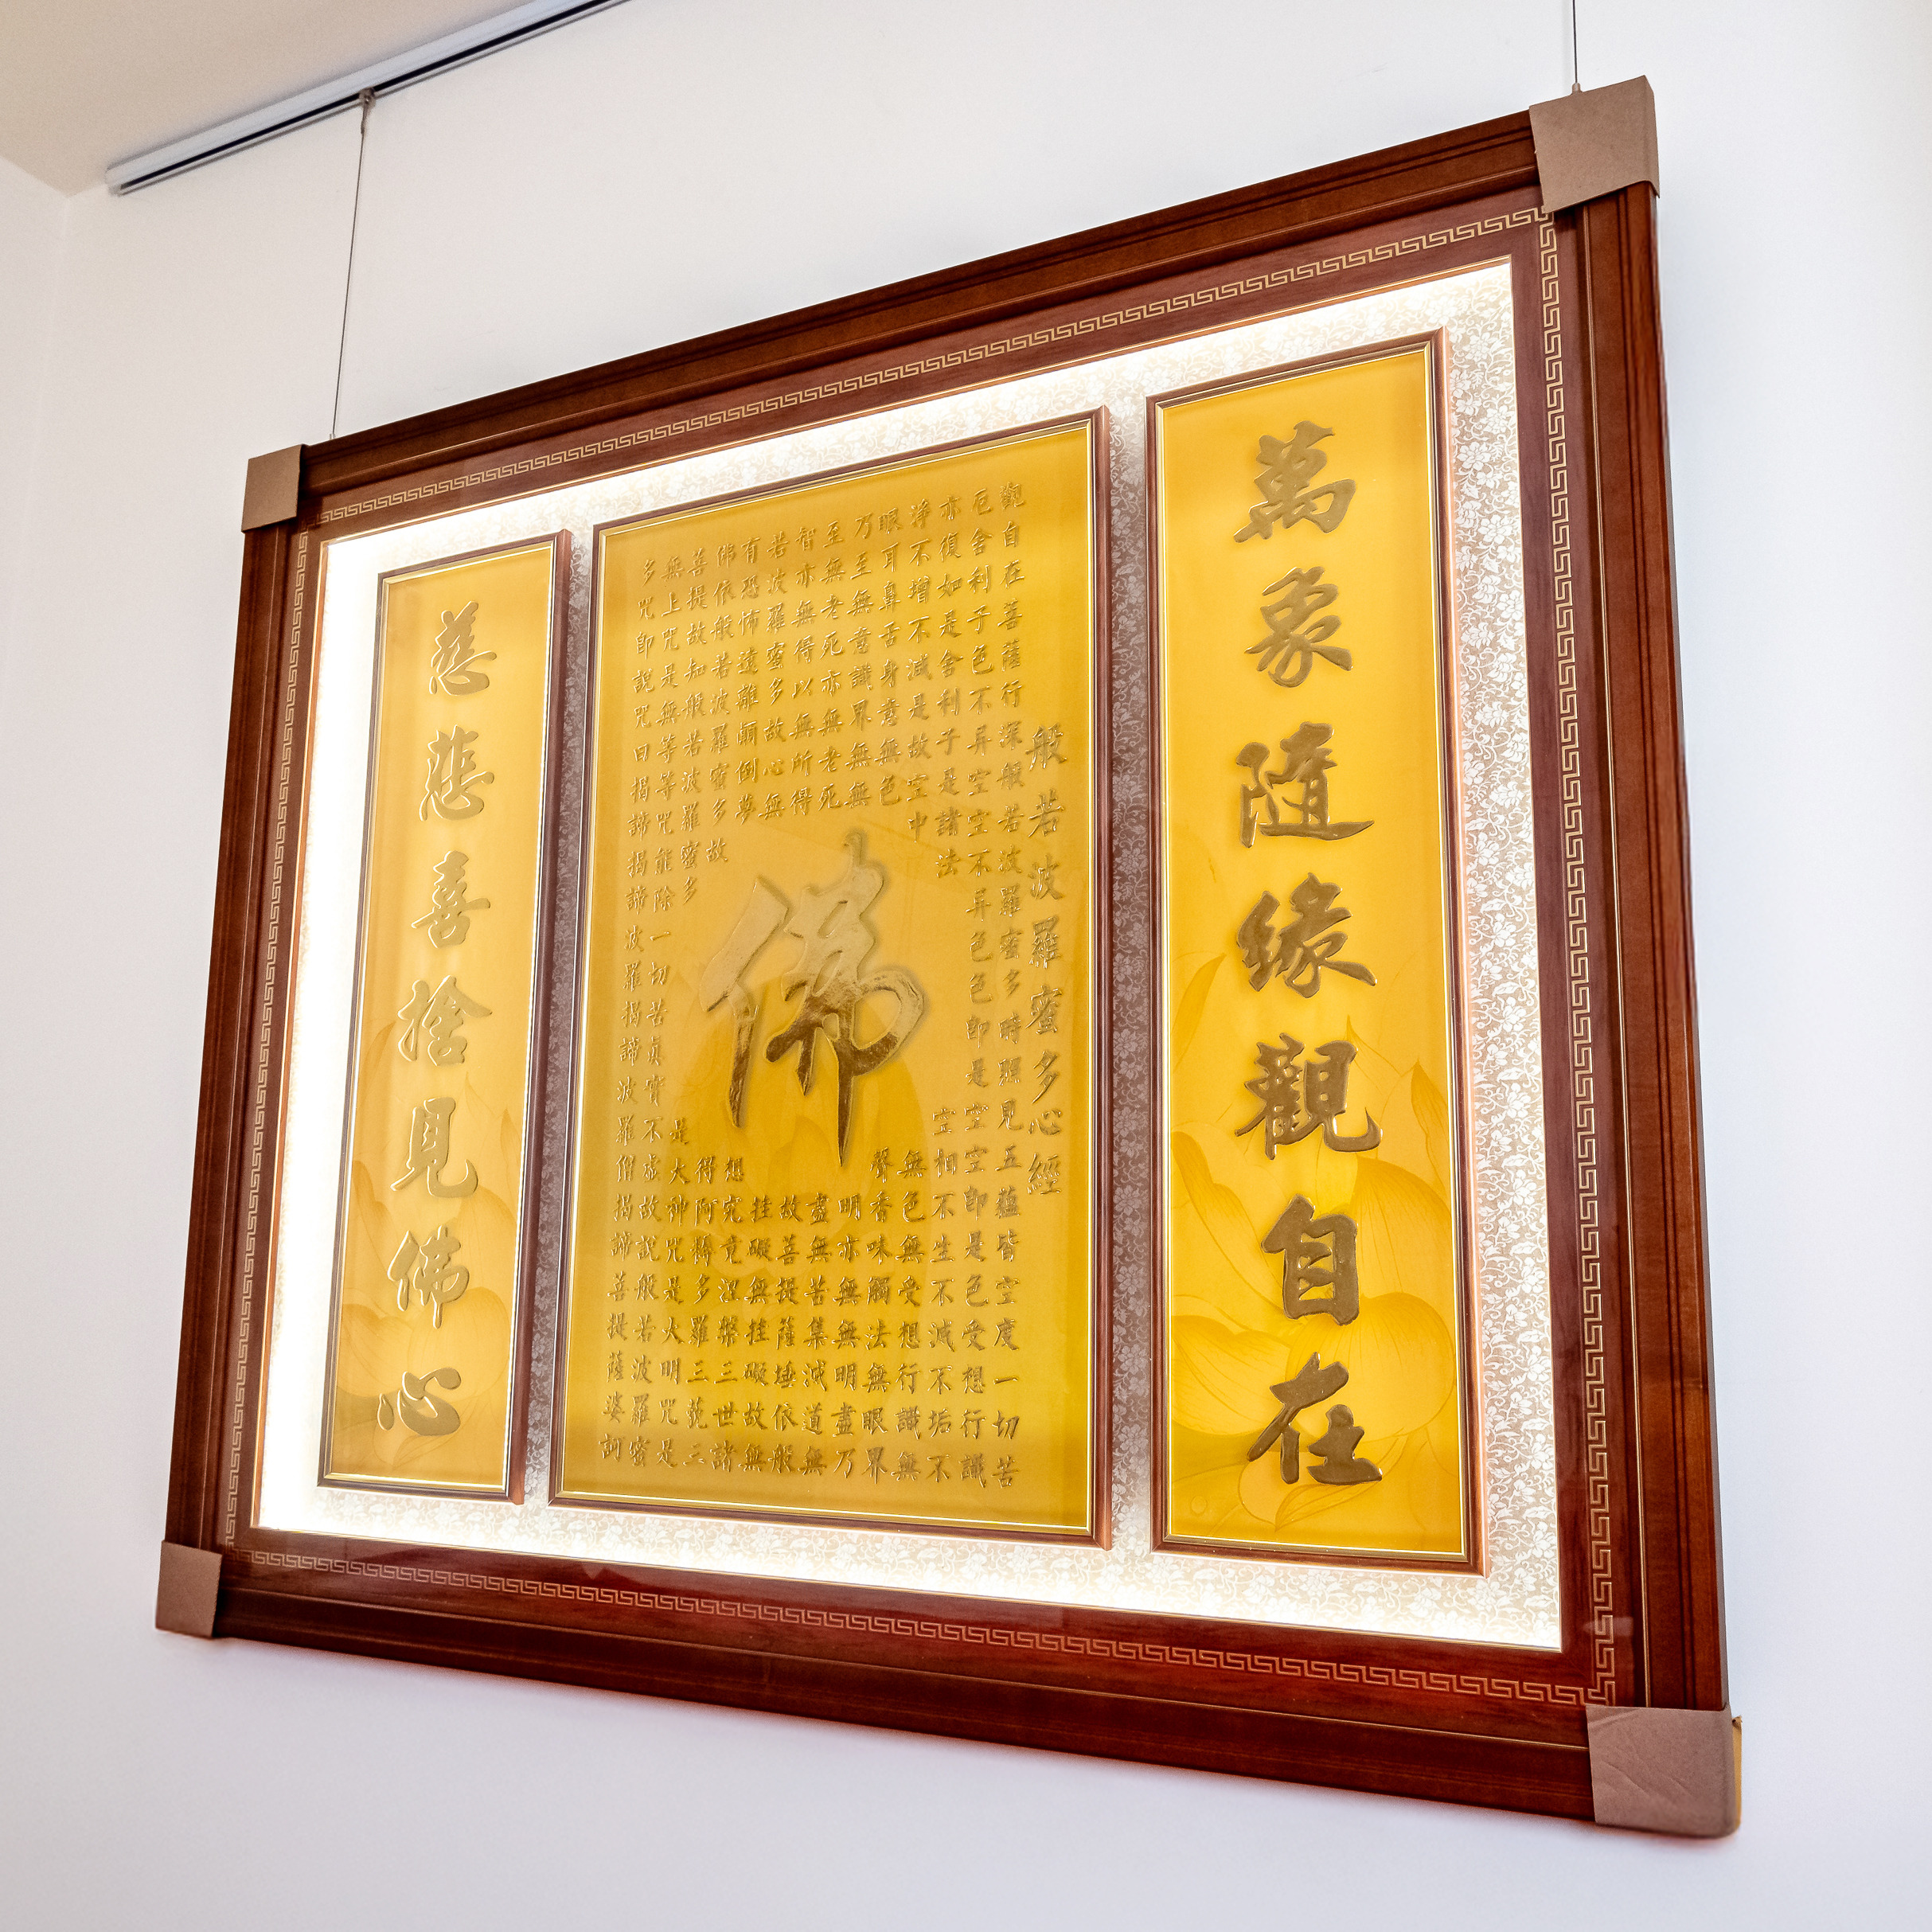 萬象隨緣觀自在
般若波羅蜜多心經
觀自在菩薩行深般若波羅蜜多時照見五蘊皆空度一切苦
厄舍利子色不异空空不异色色即是空空即是色受想行識
亦復如是舍利子是諸法空相不生不滅不垢不
淨不增不減是故空中無色無受想行識無
眼耳鼻舌身意無色聲香味觸法無眼界
乃至無意識界無無明亦無無明盡乃
至無老死亦無老死盡無苦集滅道無
智亦無得以無所得故菩提薩埵依般
若波羅蜜多故心無挂礙無挂礙故無
有恐怖遠離顛倒夢想究竟涅槃三世諸
佛依般若波羅蜜多故得阿耨多羅三藐三
菩提故知般若波羅蜜多是大神咒是大明咒是
無上咒是無等等咒能除一切苦真實不虛故說般若波羅蜜
多咒即說咒曰揭諦揭諦波羅揭諦波羅僧揭諦菩提薩婆訶
佛
慈悲喜捨見佛心